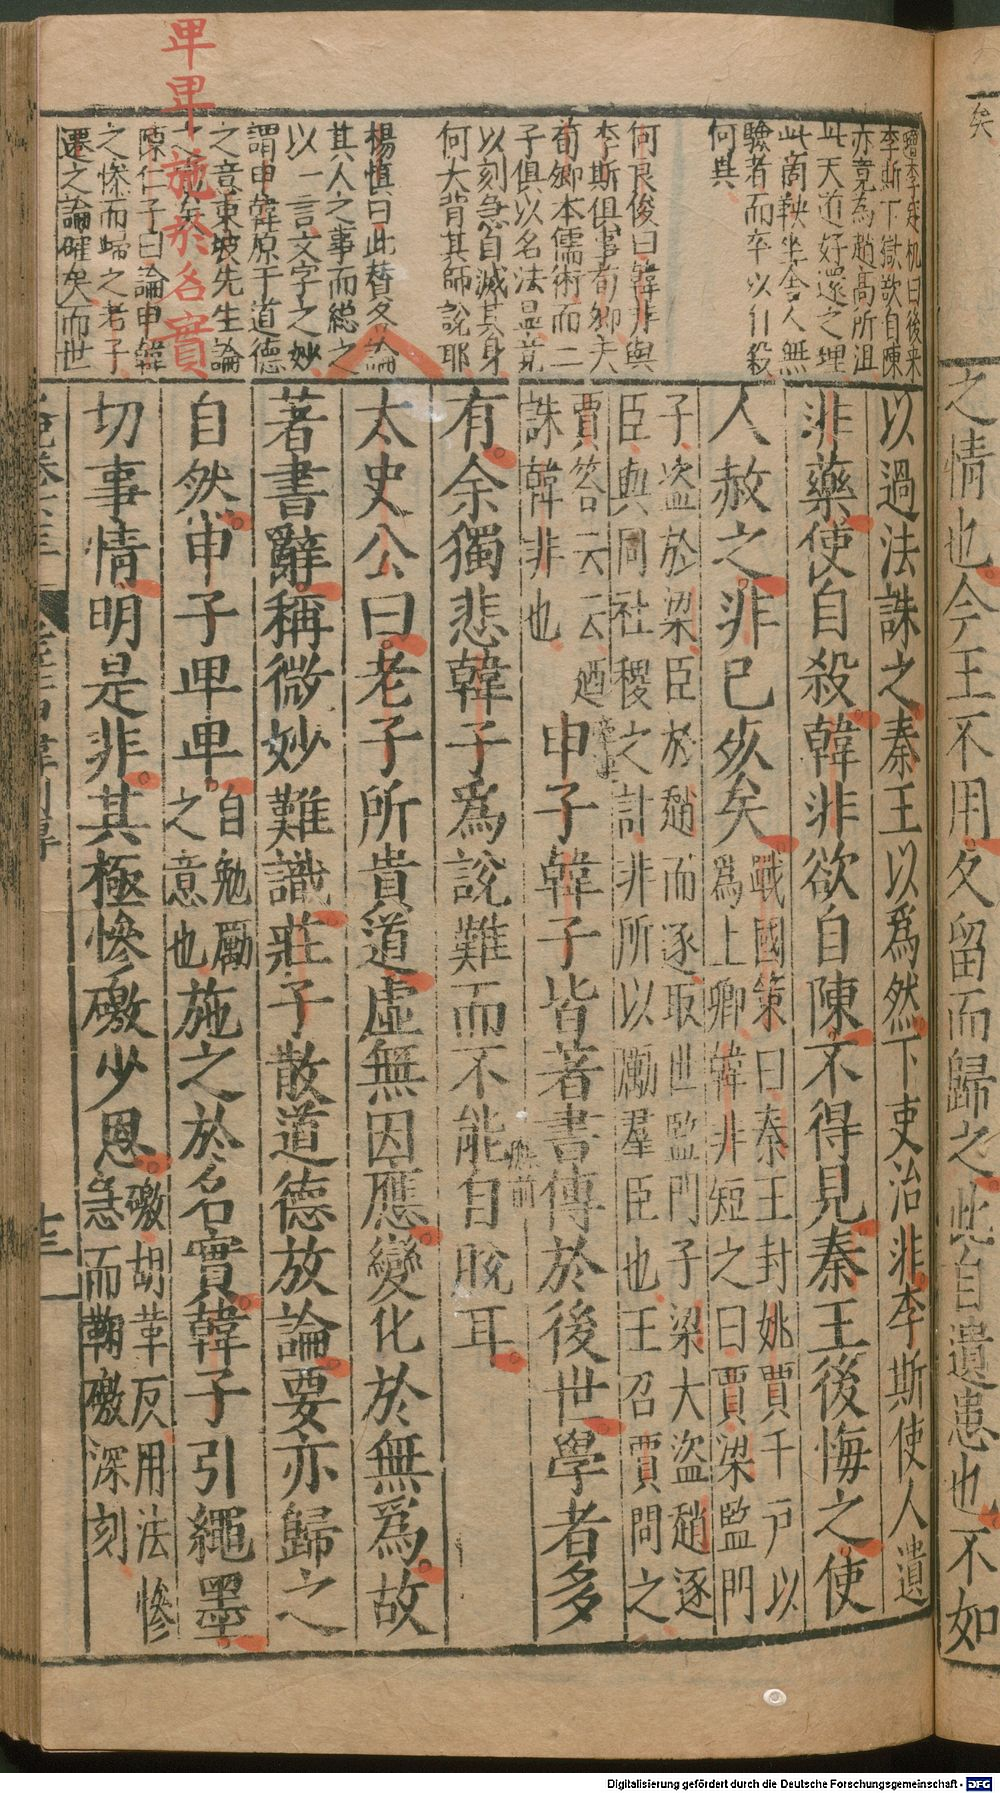 卑卑施於名實
增李定机曰後来
李斯下獄欲自陳
亦竟為趙高所沮
此天道好還之理
此商鞅坐舍人無
驗者而卒以自殺
何異
何良俊曰韓非與
李斯俱事荀卿夫
荀卿本儒術而二
子俱以名法显竟
以刻急自滅其身
何大背其師說耶
楊慎曰此賛各論
其人之事而縂之
以一言文字之妙
謂申韓原于道德
之意東坡先生論
之矣
陳仁子曰論申韓
之慘而歸之老子
遷之論確矣而世
以過法誅之秦王以爲然下吏治非李斯使人遺
非藥使自殺韓非欲自陳不得見秦王後悔之使
人赦之非已死矣
戰國策曰秦王封姚賈千戶以
爲上卿韓非短之曰賈梁監門
子盜於梁臣於趙而逐取世監門子梁大盜趙逐
臣與同社稷之計非所以勵羣臣也王召賈問之
賈答云云廼
誅韓非也
申子韓子皆著書傳於後世學者多
有余獨悲韓子爲說難而不能自脫耳
太史公曰老子所貴道虛無因應變化於無爲故
著書辭稱微妙難識莊子散道德放論要亦歸之
自然申子卑卑
自勉勵
之意也
施之於名實韓子引繩墨
切事情明是非其極慘礉少恩
礉胡革反用法慘
急而鞫礉深刻
矣
之情也今王不用久留而歸之此自遺患也不如
Digitalisierung gefördert durch die Deutsche Forschungsgemeinschaft - DFG